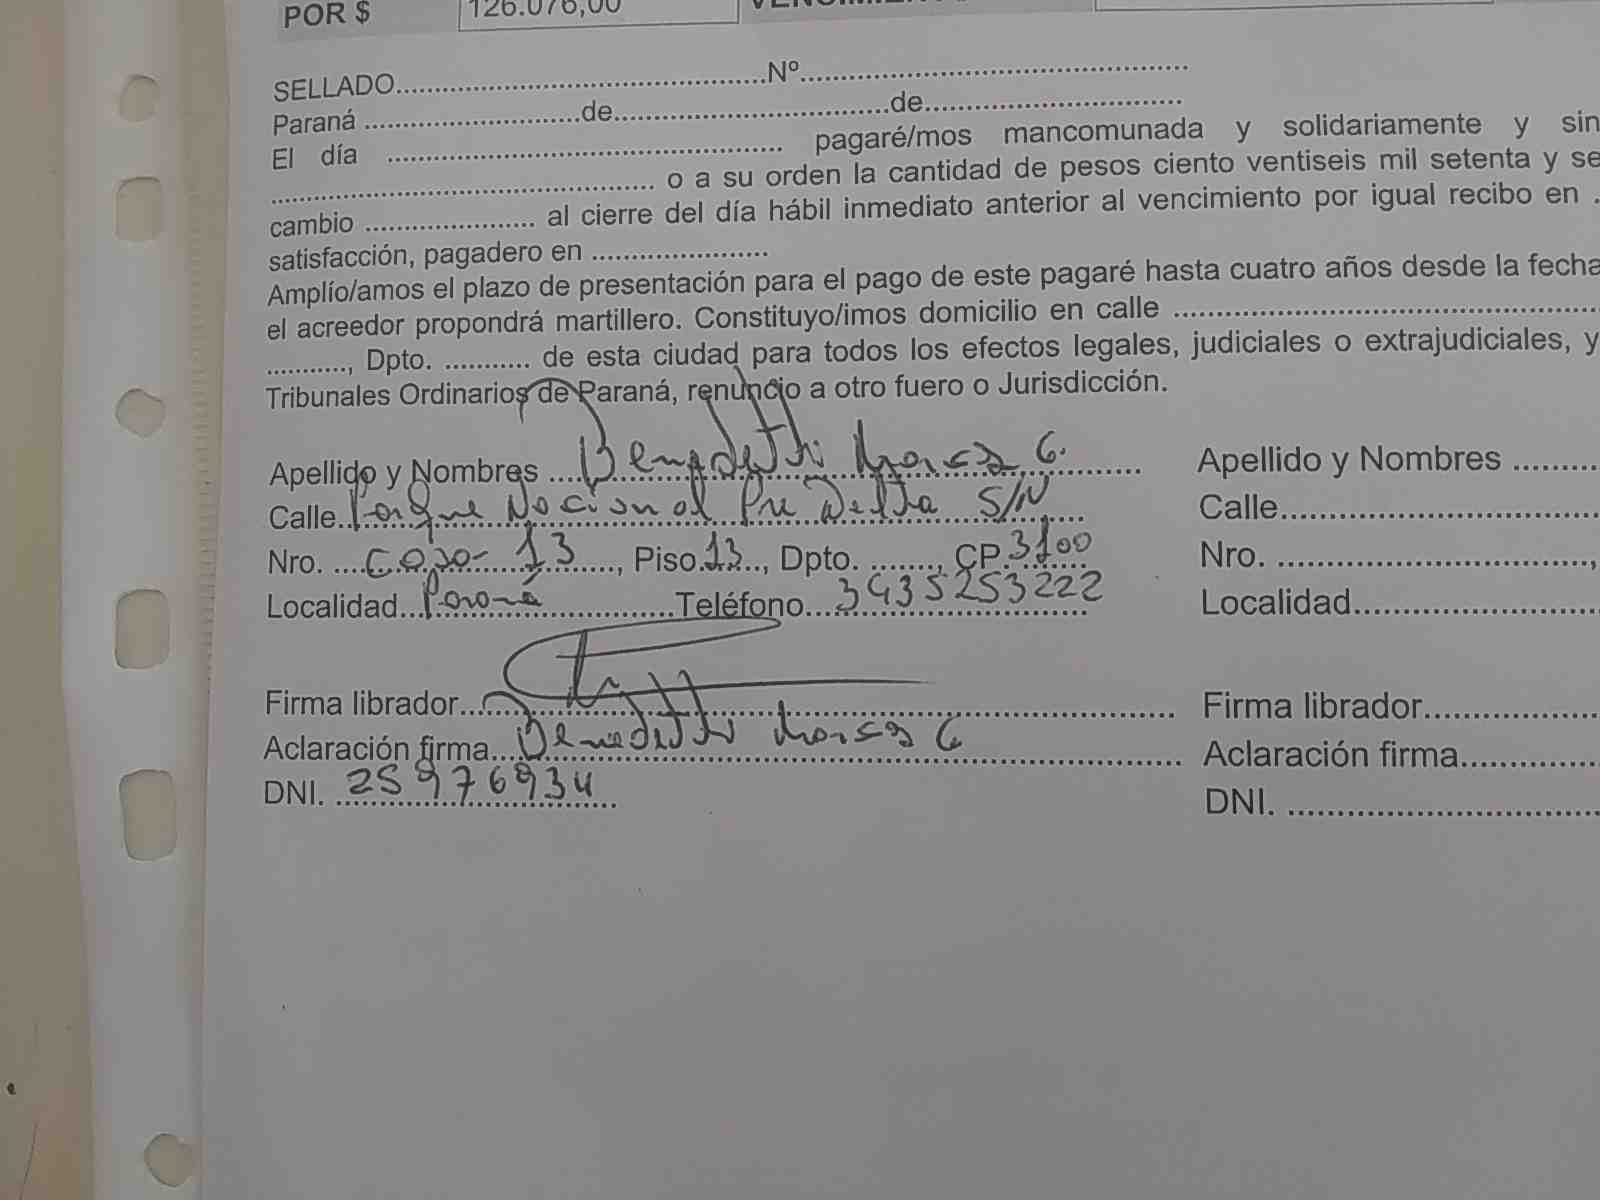 POR $ 126.076,00
SELLADO..............................................Nº................................................
Paraná ...........................de..................................de................................
El día ................................................. pagaré/mos mancomunada y solidariamente y sin
................................................ o a su orden la cantidad de pesos ciento ventiseis mil setenta y se
cambio ..................... al cierre del día hábil inmediato anterior al vencimiento por igual recibo en .
satisfacción, pagadero en ......................
Amplío/amos el plazo de presentación para el pago de este pagaré hasta cuatro años desde la fecha
el acreedor propondrá martillero. Constituyo/imos domicilio en calle ......................................
..........., Dpto. ........... de esta ciudad para todos los efectos legales, judiciales o extrajudiciales, y
Tribunales Ordinarios de Paraná, renuncio a otro fuero o Jurisdicción.
Apellido y Nombres .... Benedetti G. Apellido y Nombres .........
Calle.. Parque Nacional Pre Delta S/N Calle.......................................
Nro. .... 13 ...., Piso.13.., Dpto. ......., CP.3100 Nro. .......................................,
Localidad... Paraná .................Teléfono... 3435253222 Localidad..............................
Firma librador....................................................... Firma librador.....................
Aclaración firma.... Benedetti G Aclaración firma.................
DNI. 25976934 DNI. ......................................